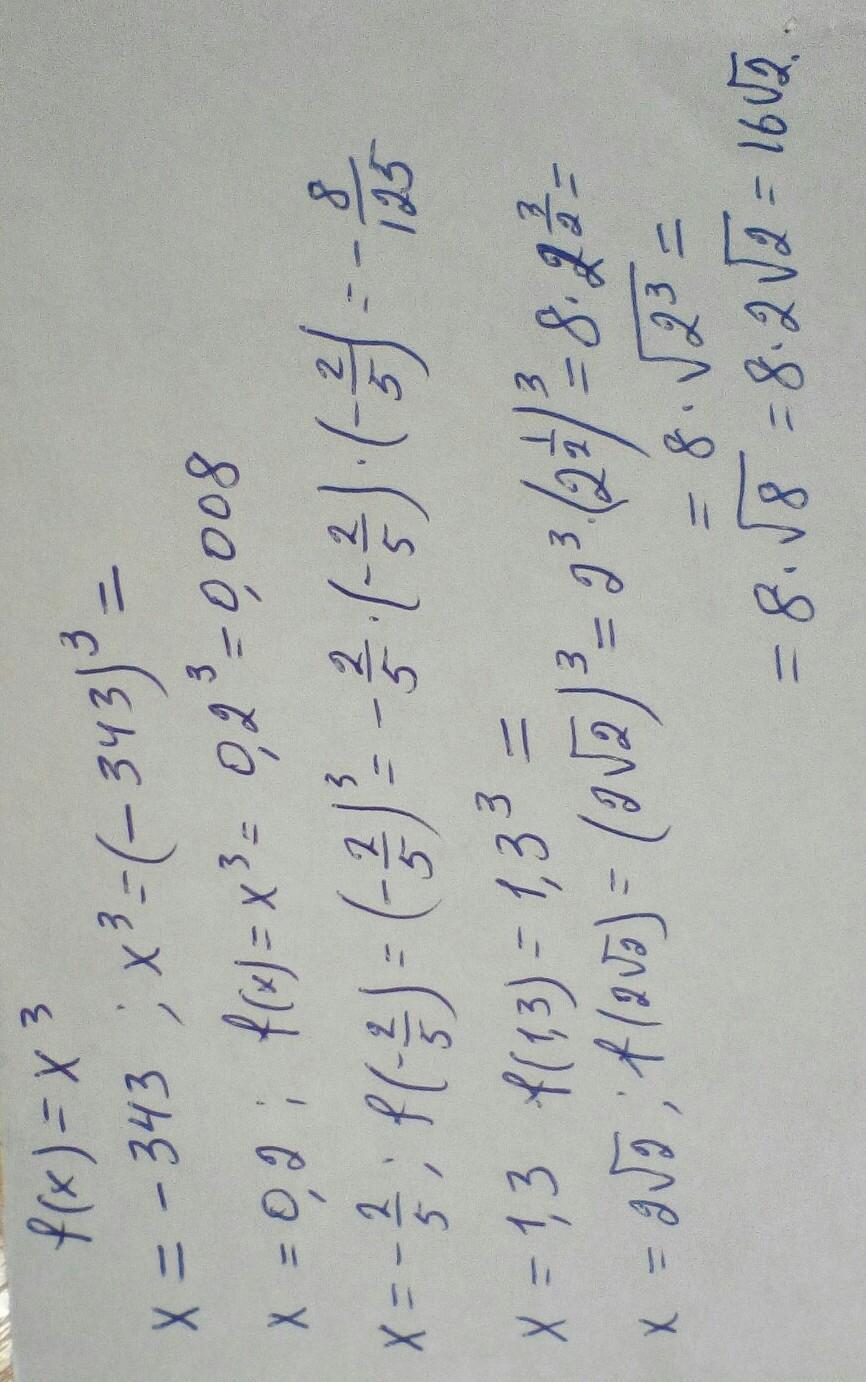 f(x) = x³
x = -343 ; x³ = (-343)³ =
x = 0,2 ; f(x) = x³ = 0,2³ = 0,008
x = -2/5 ; f(-2/5) = (-2/5)³ = -2/5 · (-2/5) · (-2/5) = -8/125
x = 1,3 f(1,3) = 1,3³ =
x = 2√2 ; f(2√2) = (2√2)³ = 2³ · (2^(1/2))³ = 8 · 2^(3/2) =
= 8 · √2³ =
= 8 · √8 = 8 · 2√2 = 16√2.